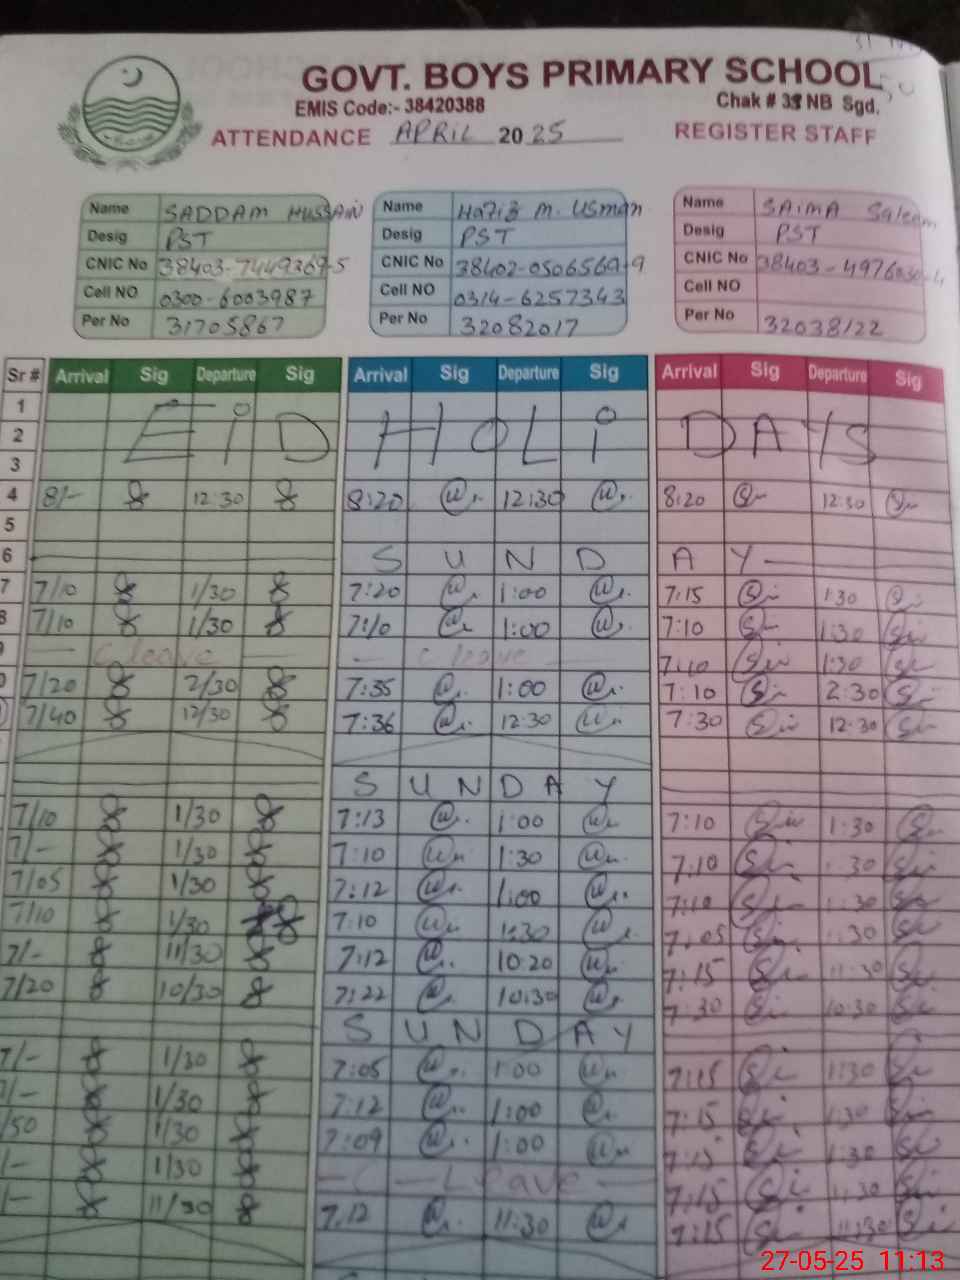 GOVT. BOYS PRIMARY SCHOOL
EMIS Code:- 38420388 Chak # 38 NB Sgd.
ATTENDANCE APRIL 2025 REGISTER STAFF
Name SADDAM HUSSAIN Name Hafiz M. Usman Name SAIMA Saleem
Desig PST Desig PST Desig PST
CNIC No 38403-7449369-5 CNIC No 38402-0506569-9 CNIC No
Cell NO 0300-6003987 Cell NO 0314-6257343 Cell NO
Per No 31705867 Per No 32082017 Per No 32038122
Sr # Arrival Sig Departure Sig Arrival Sig Departure Sig Arrival Sig Departure Sig
1
2 EiD HOLi DAYS
3
4 8/- 12:30 8:20 12:30 8:20 12:30
5
6 SUNDAY
7 7/10 1/30 7:20 1:00 7:15 1:30
8 7/10 1/30 7:10 1:00 7:10 1:30
C leave C leave 7:10 1:30
7/20 2/30 7:35 1:00 7:10 2:30
7/40 12/30 7:36 12:30 7:30 12:30
SUNDAY
7/10 1/30 7:13 1:00 7:10 1:30
7/- 1/30 7:10 1:30 7:10 :30
7/05 1/30 7:12 1:00 7:10 1:30
7/10 1/30 7:10 1:30 7:05 1:30
7/- 11/30 7:12 10:20 7:15 11:30
7/20 10/30 7:22 10:30 7:30 10:30
SUNDAY
7/- 1/30 7:05 1:00 7:15 1:30
7/- 1/30 7:12 1:00 7:15 1:30
/50 1/30 7:09 1:00 7:15 1:30
/- 1/30 C Leave 7:15 1:30
/- 11/30 7.12 11:30 7:15 11:30
27-05-25 11:13